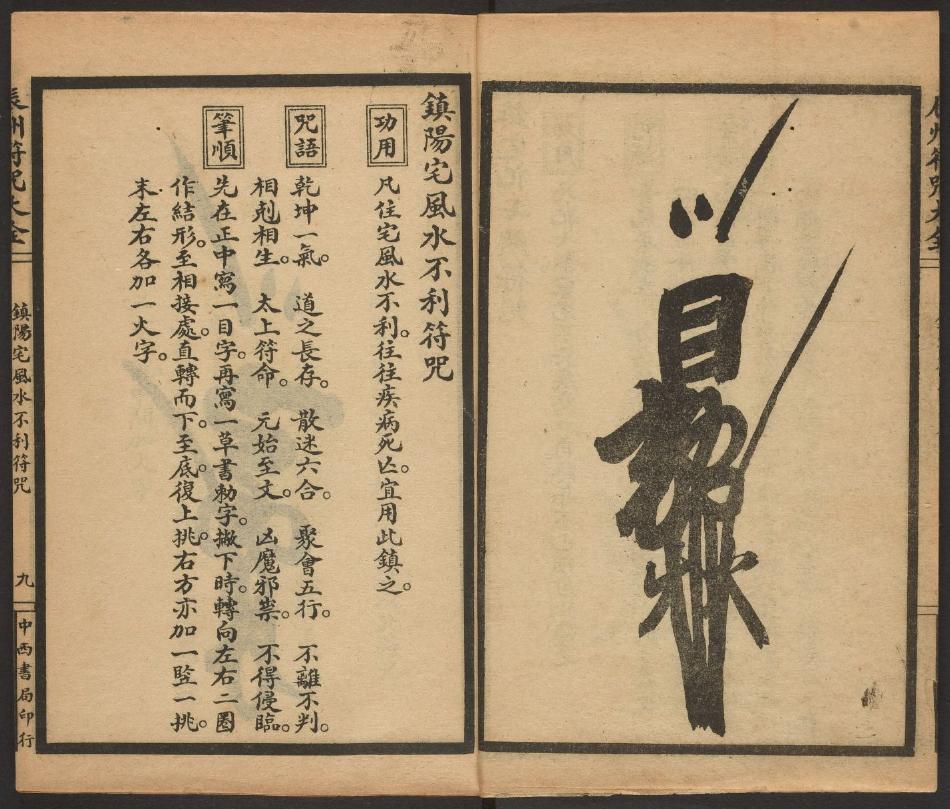 辰州符咒大全
鎮陽宅風水不利符咒
功用
凡住宅風水不利。往往疾病死亾。宜用此鎮之。
咒語
乾坤一氣。 道之長存。 散迷六合。 聚會五行。 不離不判。
相剋相生。 太上符命。 元始至文。 凶魔邪祟。 不得侵臨。
筆順
先在正中寫一目字。再寫一草書勅字。撇下時。轉向左右二圈
作結形。至相接處。直轉而下。至底。復上挑。右方亦加一豎一挑。
末左右各加一火字。
辰州符咒大全
鎮陽宅風水不利符咒
九
中西書局印行